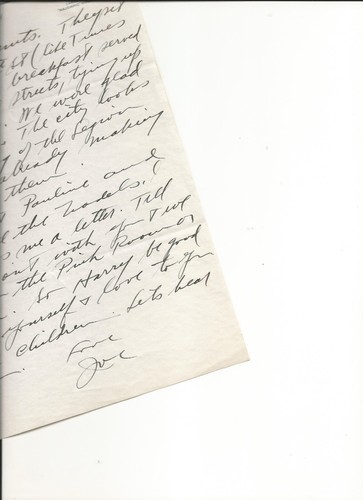 nuts. They set
68 (like Times
breakfast served
streets, tying up
We were glad
. The city looks
of the Legion
already making
them.
Pauline and
the models,
me a letter. Tell
with you I've
the Pink Room or
. So Harry be good
yourself & love to you
children. Lets hear
Love
Joe